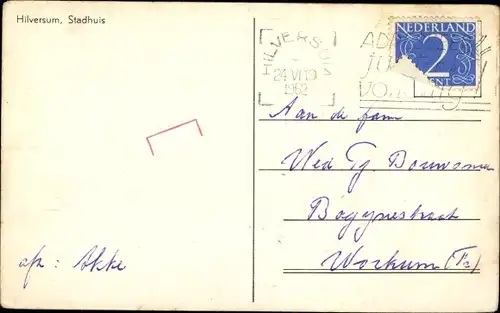 Hilversum, Stadhuis
HILVERSUM
24 VI 19
1962
NEDERLAND
2
CENT
Aan de fam
Wed Tj. Bouwsma
Begynestraat
Workum (Fr)
afz: Akke